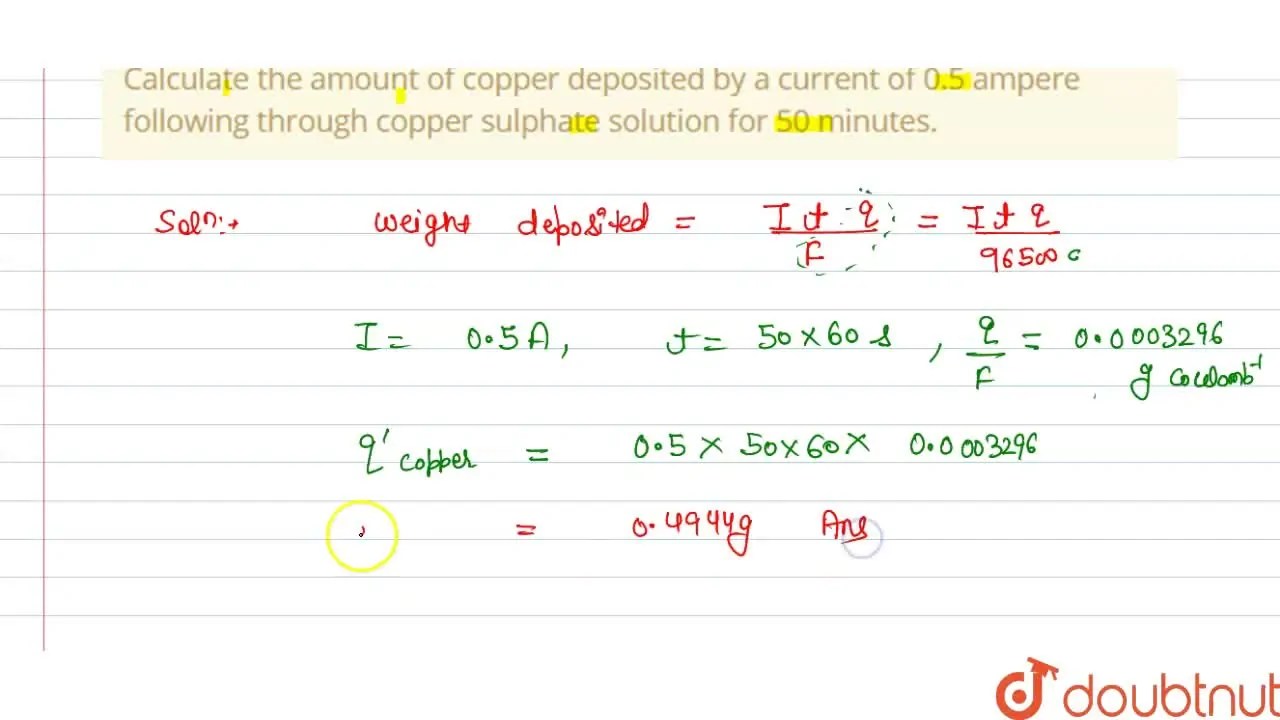 Calculate the amount of copper deposited by a current of 0.5 ampere
following through copper sulphate solution for 50 minutes.
Solⁿ:→ weight deposited = I t q / F = I t q / 96500 c
I = 0.5 A, t = 50 × 60 s, q / F = 0.0003296
g coulomb⁻¹
q' copper = 0.5 × 50 × 60 × 0.0003296
= 0.4944g Ans
doubtnut